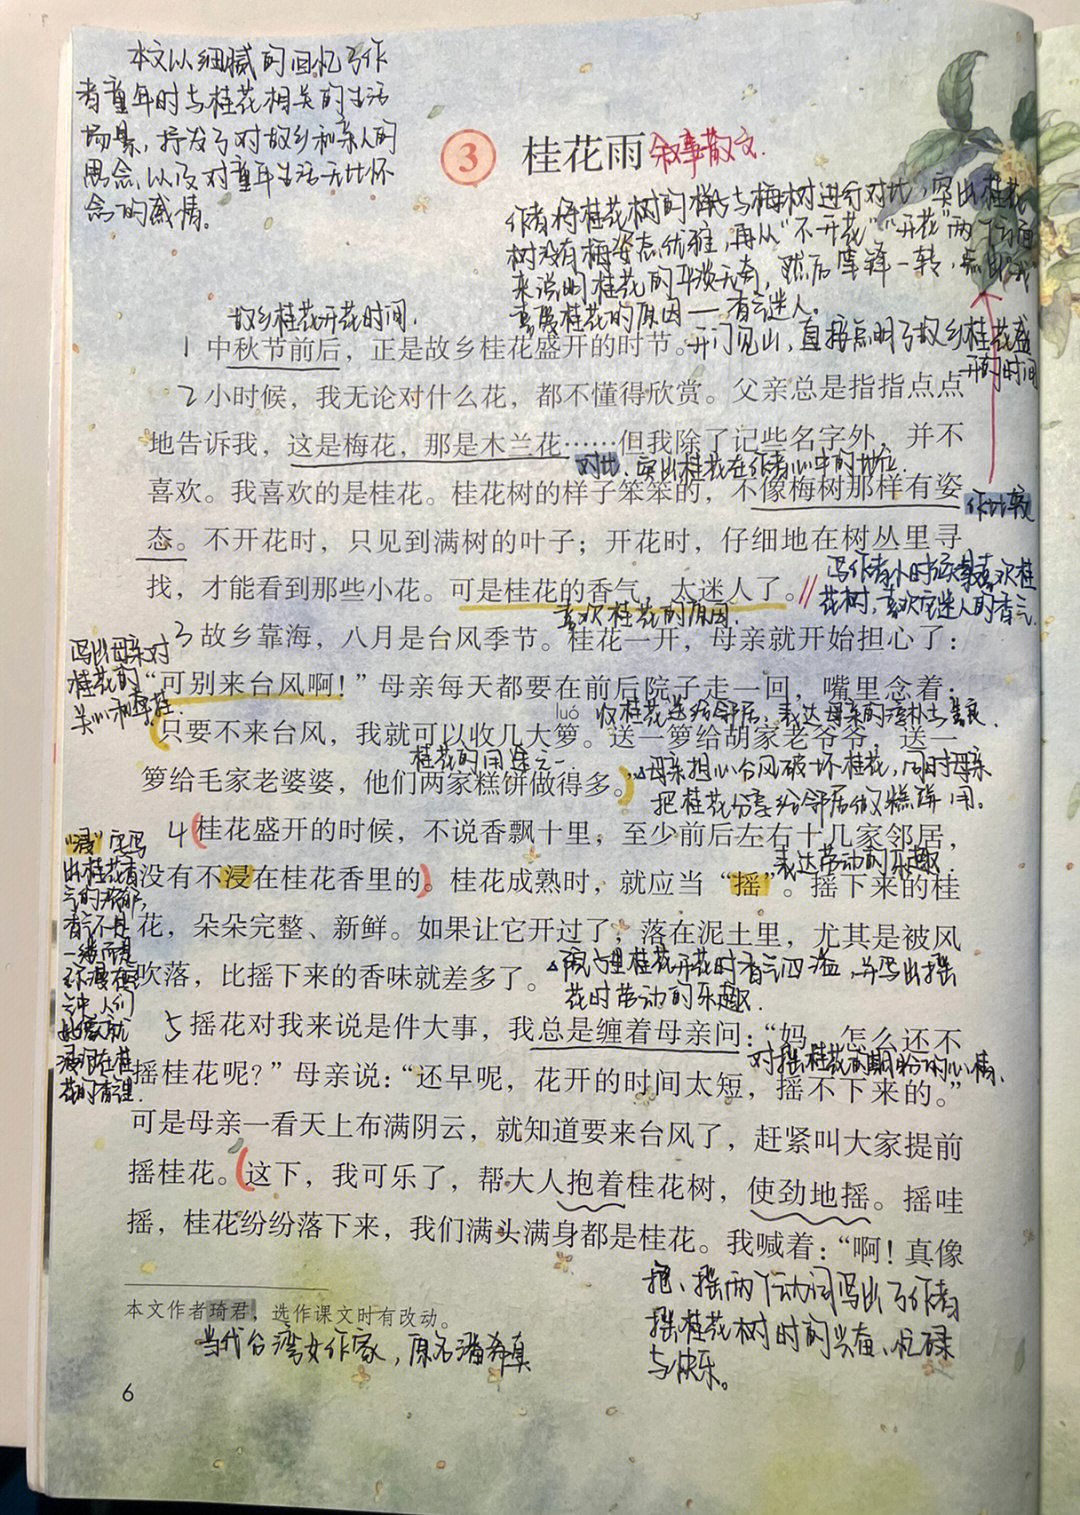 本文以细腻的回忆了作
者童年时与桂花相关的生活
场景，抒发了对故乡和亲人的
思念，以及对童年生活无比怀
念的感情。
3 桂花雨 叙事散文.
作者将桂花树的样子与梅树进行对比，突出桂花
树没有梅姿态优雅，再从“不开花”“开花”两个方面
来说明桂花的平淡无奇，然后笔锋一转，点出“我”
喜爱桂花的原因——香气迷人。
故乡桂花开花时间.
1 中秋节前后，正是故乡桂花盛开的时节。
开门见山，直接点明了故乡桂花盛
开的时间
2 小时候，我无论对什么花，都不懂得欣赏。父亲总是指指点点
地告诉我，这是梅花，那是木兰花……但我除了记些名字外，并不
对比，突出桂花在作者心中的地位.
喜欢。我喜欢的是桂花。桂花树的样子笨笨的，不像梅树那样有姿
作比较
态。不开花时，只见到满树的叶子；开花时，仔细地在树丛里寻
找，才能看到那些小花。可是桂花的香气，太迷人了。
写作者小时候最喜欢桂
花树，喜欢它迷人的香气.
喜欢桂花的原因.
3 故乡靠海，八月是台风季节。桂花一开，母亲就开始担心了：
“可别来台风啊！”母亲每天都要在前后院子走一回，嘴里念着：
写出母亲对
桂花的
关心和牵挂.
luó 收桂花送给邻居，表达母亲的淳朴与善良.
只要不来台风，我就可以收几大箩。送一箩给胡家老爷爷，送一
桂花的用途之一.
箩给毛家老婆婆，他们两家糕饼做得多。
母亲担心台风破坏桂花，同时母亲
把桂花分享给邻居做糕饼用。
4 桂花盛开的时候，不说香飘十里，至少前后左右十几家邻居，
表达劳动的乐趣.
没有不浸在桂花香里的。桂花成熟时，就应当“摇”。摇下来的桂
花，朵朵完整、新鲜。如果让它开过了，落在泥土里，尤其是被风
吹落，比摇下来的香味就差多了。
桂花开花时香气四溢，并写出摇
花时劳动的乐趣.
“浸”字写
出桂花香
气的浓郁，
香气不是
一缕而是
弥漫在空
气中，人们
5 摇花对我来说是件大事，我总是缠着母亲问：“妈，怎么还不
对摇桂花的期盼的心情.
摇桂花呢？”母亲说：“还早呢，花开的时间太短，摇不下来的。”
可是母亲一看天上布满阴云，就知道要来台风了，赶紧叫大家提前
摇桂花。这下，我可乐了，帮大人抱着桂花树，使劲地摇。摇哇
摇，桂花纷纷落下来，我们满头满身都是桂花。我喊着：“啊！真像
抱、摇两个动词写出了作者
摇桂花树时的兴奋、忙碌
与快乐。
本文作者琦君，选作课文时有改动。
当代台湾女作家，原名潘希真
6